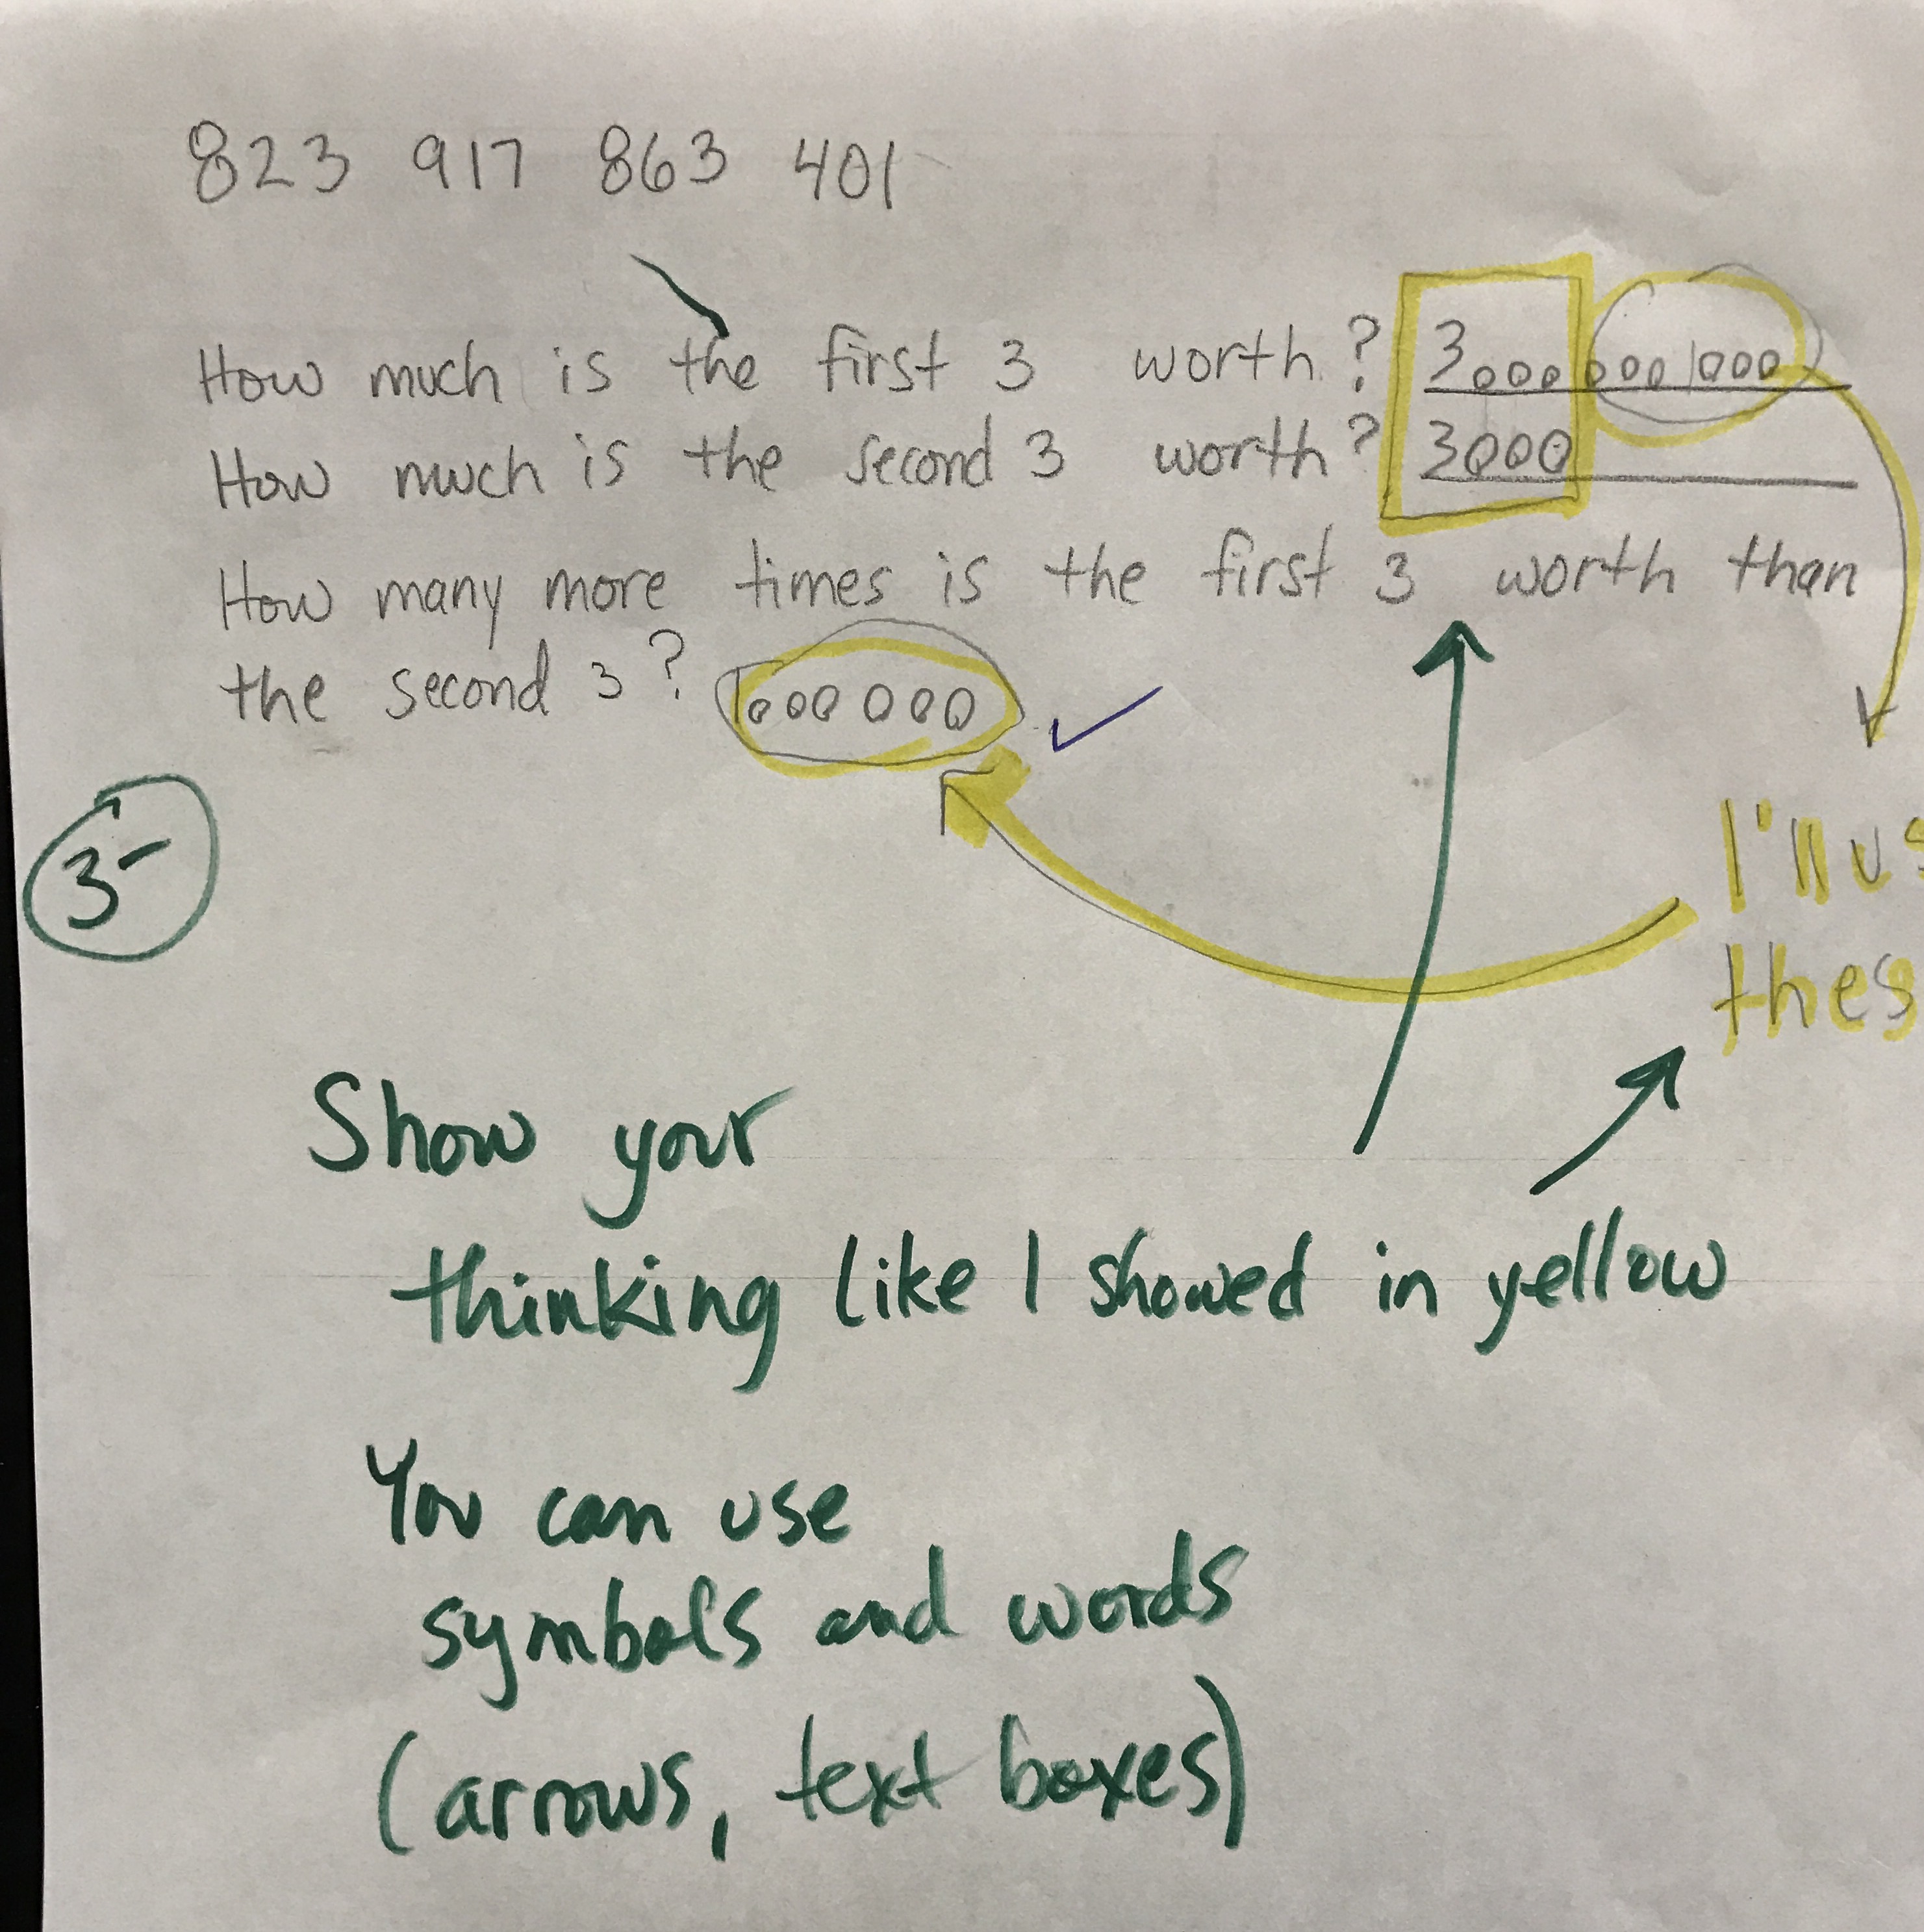 823 917 863 401
How much is the first 3 worth? 3000000000
How much is the second 3 worth? 3000
How many more times is the first 3 worth than
the second 3? 1000 000
3-
I'll us
thes
Show your
thinking like I showed in yellow
You can use
symbols and words
(arrows, text boxes)